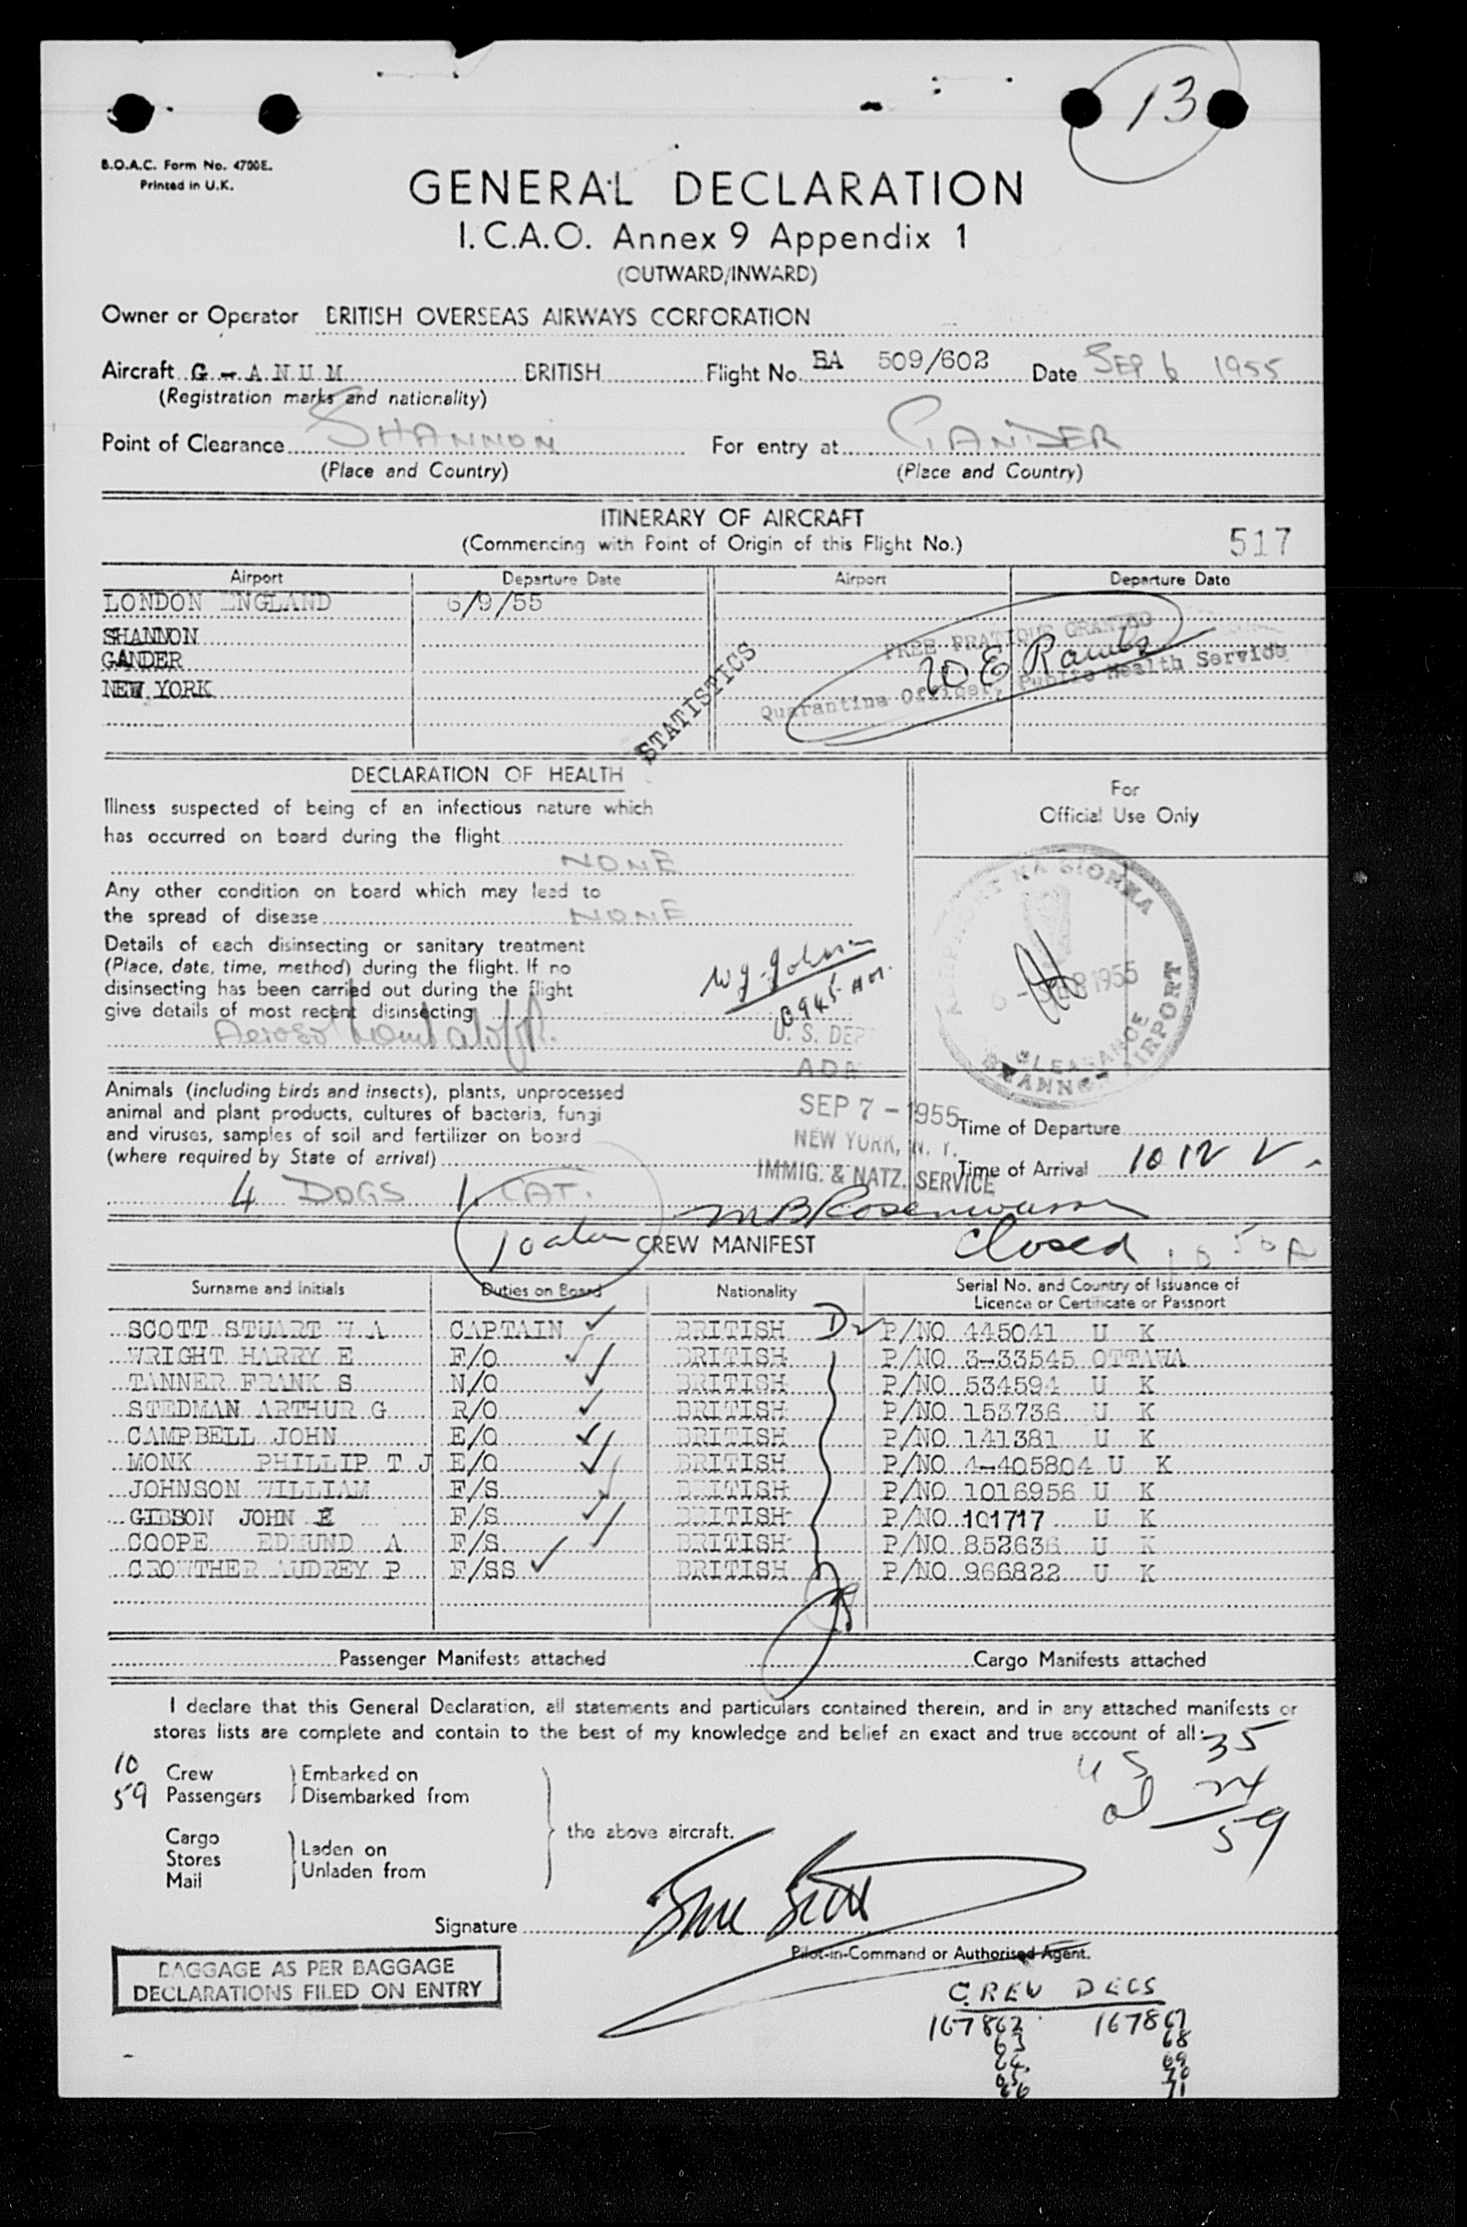 13
B.O.A.C. Form No. 4700E.
Printed in U.K.
GENERAL DECLARATION
I.C.A.O. Annex 9 Appendix 1
(OUTWARD/INWARD)
Owner or Operator BRITISH OVERSEAS AIRWAYS CORPORATION
Aircraft G-ANUM BRITISH Flight No. BA 509/602 Date SEP 6 1955
(Registration marks and nationality)
Point of Clearance SHANNON For entry at GANDER
(Place and Country) (Place and Country)
ITINERARY OF AIRCRAFT
(Commencing with Point of Origin of this Flight No.) 517
Airport Departure Date Airport Departure Date
LONDON ENGLAND 6/9/55
SHANNON
GANDER
NEW YORK
STATISTICS
FREE PRATIQUE GRANTED
W E
Quarantine Officer, Public Health Service
DECLARATION OF HEALTH
For
Official Use Only
Illness suspected of being of an infectious nature which
has occurred on board during the flight
NONE
Any other condition on board which may lead to
the spread of disease NONE
Details of each disinsecting or sanitary treatment
(Place, date, time, method) during the flight. If no
disinsecting has been carried out during the flight
give details of most recent disinsecting
0945 AM
U. S. DEP
6 - SEP 1955
CLEARANCE
SHANNON AIRPORT
SEP 7 - 1955
NEW YORK, N. Y.
IMMIG. & NATZ. SERVICE
Animals (including birds and insects), plants, unprocessed
animal and plant products, cultures of bacteria, fungi
and viruses, samples of soil and fertilizer on board
(where required by State of arrival)
4 DOGS 1 CAT.
Time of Departure
Time of Arrival 1012
Closed 10 50 A
CREW MANIFEST
Surname and Initials Duties on Board Nationality Serial No. and Country of Issuance of
Licence or Certificate or Passport
SCOTT STUART W A CAPTAIN BRITISH D P/NO 445041 U K
WRIGHT HARRY E F/O BRITISH P/NO 3-33545 OTTAWA
TANNER FRANK S N/O BRITISH P/NO 534594 U K
STEDMAN ARTHUR G R/O BRITISH P/NO 153736 U K
CAMPBELL JOHN E/O BRITISH P/NO 141381 U K
MONK PHILLIP T J E/O BRITISH P/NO 4-405804 U K
JOHNSON WILLIAM F/S BRITISH P/NO 1016956 U K
GIBSON JOHN E F/S BRITISH P/NO 101717 U K
COOPE EDMUND A F/S BRITISH P/NO 852636 U K
CROWTHER AUDREY P F/SS BRITISH P/NO 966822 U K
Passenger Manifests attached Cargo Manifests attached
I declare that this General Declaration, all statements and particulars contained therein, and in any attached manifests or
stores lists are complete and contain to the best of my knowledge and belief an exact and true account of all:
10 Crew Embarked on
59 Passengers Disembarked from
U S 35
al 24
59
the above aircraft.
Cargo
Stores
Mail
Laden on
Unladen from
Signature
Pilot-in-Command or Authorised Agent.
BAGGAGE AS PER BAGGAGE
DECLARATIONS FILED ON ENTRY
CREW DECS
167862 167867
63 68
64 69
65 70
66 71